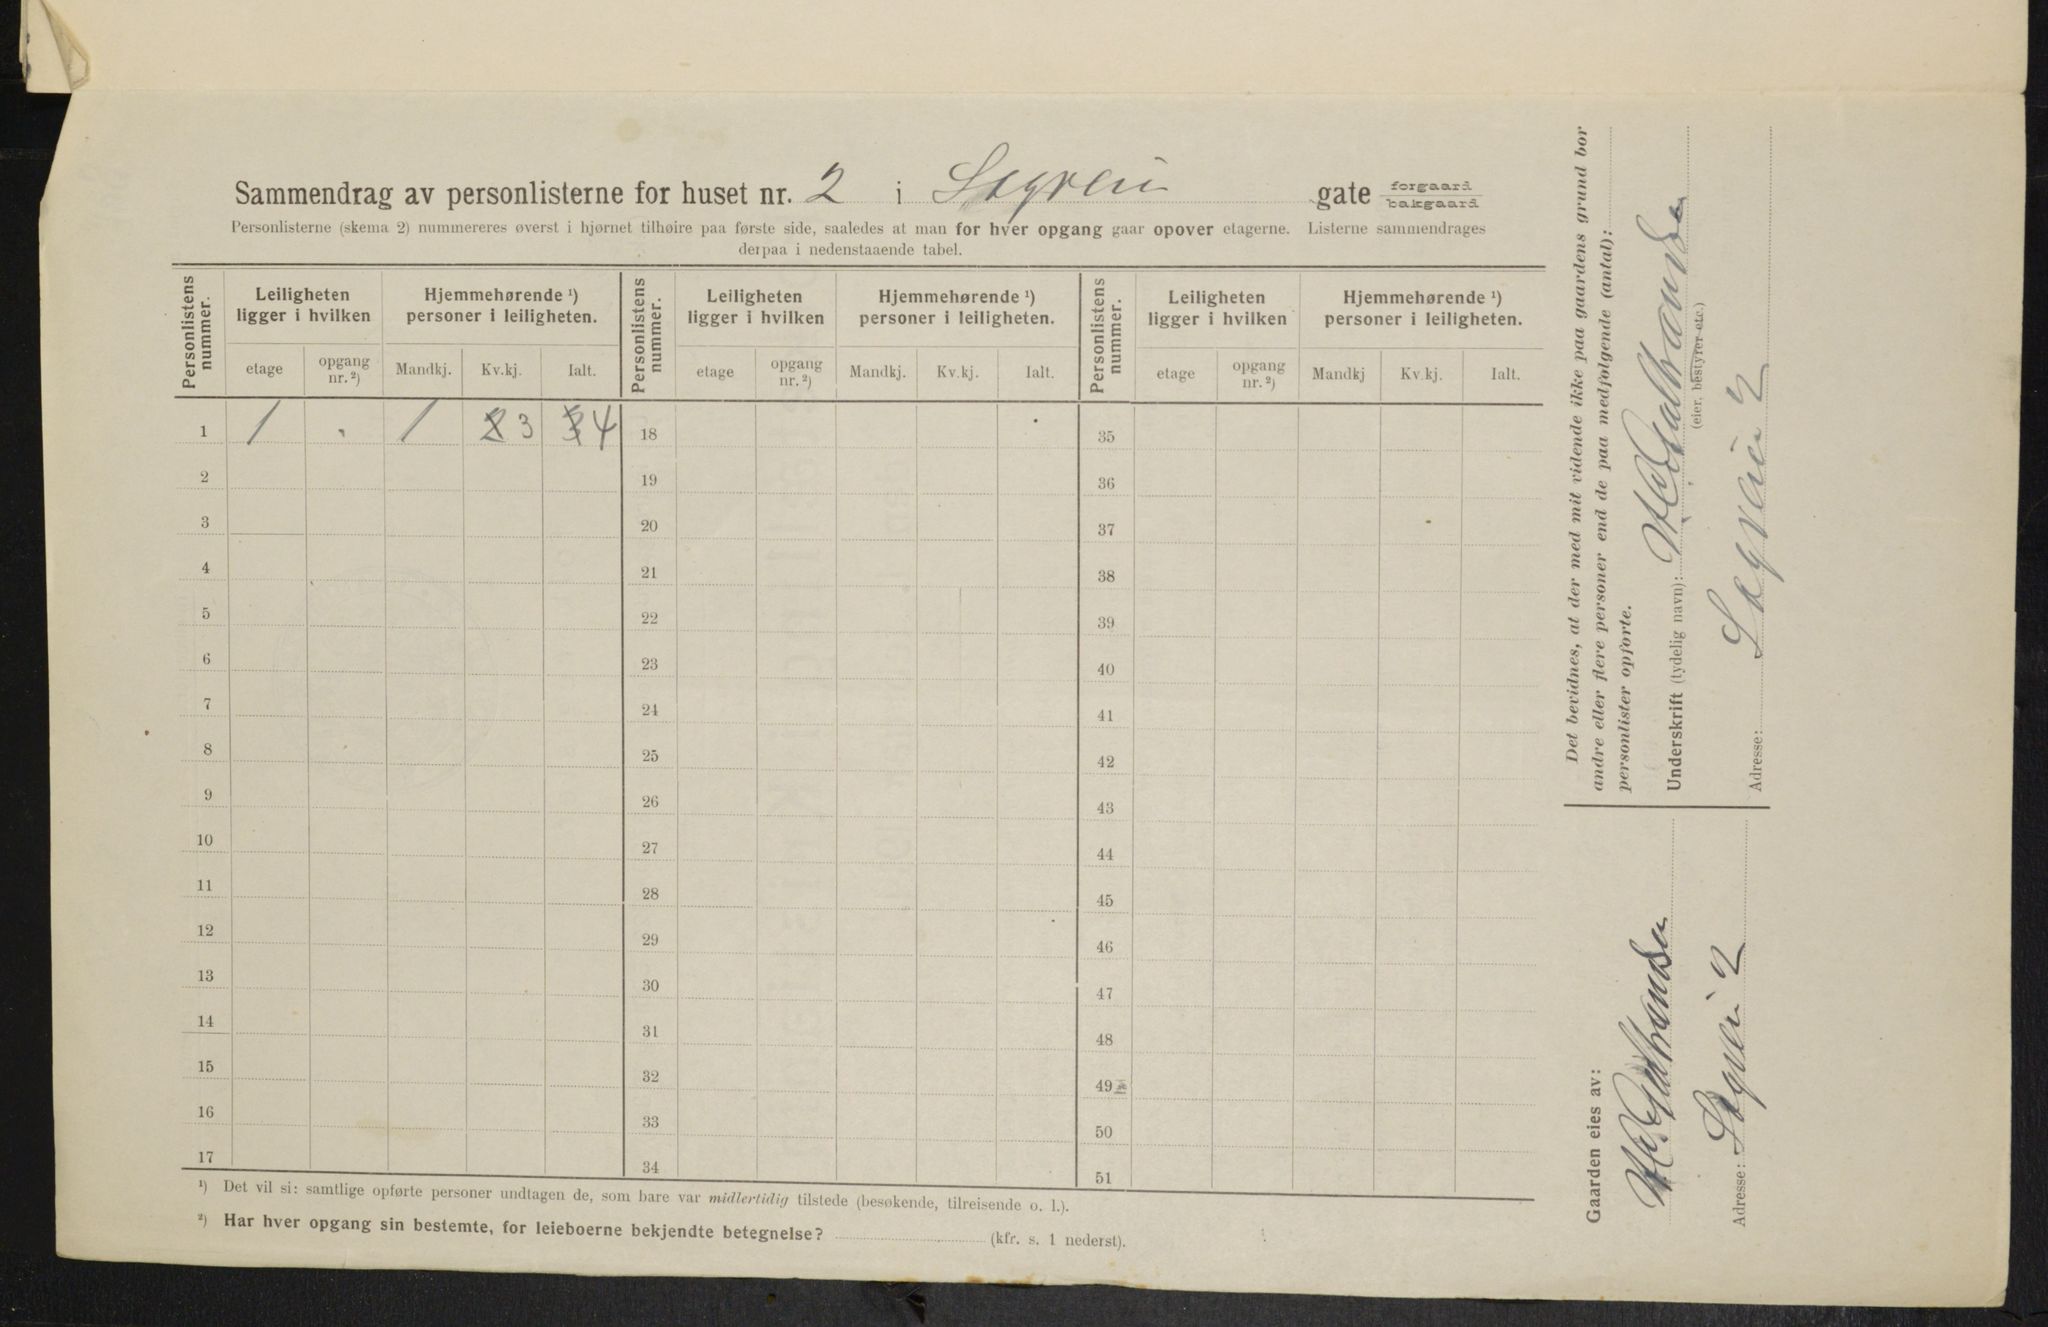 Sammendrag av personlisterne for huset nr. 2 i Sagveien gate forgaard bakgaard
Personlisterne (skema 2) nummereres øverst i hjørnet tilhøire paa første side, saaledes at man for hver opgang gaar opover etagerne. Listerne sammendrages
derpaa i nedenstaaende tabel.
Personlistens nummer. Leiligheten ligger i hvilken Hjemmehørende ¹) personer i leiligheten. Personlistens nummer. Leiligheten ligger i hvilken Hjemmehørende ¹) personer i leiligheten. Personlistens nummer. Leiligheten ligger i hvilken Hjemmehørende ¹) personer i leiligheten.
etage opgang nr. ²) Mandkj. Kv.kj. Ialt. etage opgang nr. ²) Mandkj. Kv.kj. Ialt. etage opgang nr. ²) Mandkj Kv.kj. Ialt.
1 1 1 3 4 18 35
2 19 36
3 20 37
4 21 38
5 22 39
6 23 40
7 24 41
8 25 42
9 26 43
10 27 44
11 28 45
12 29 46
13 30 47
14 31 48
15 32 49
16 33 50
17 34 51
¹) Det vil si: samtlige opførte personer undtagen de, som bare var midlertidig tilstede (besøkende, tilreisende o. l.).
²) Har hver opgang sin bestemte, for leieboerne bekjendte betegnelse? (kfr. s. 1 nederst).
Det bevidnes, at der med mit vidende ikke paa gaardens grund bor
andre eller flere personer end de paa medfølgende (antal):
personlister opførte.
Underskrift (tydelig navn):
(eier, bestyrer etc.)
Adresse: Sagveien 2
Gaarden eies av:
Adresse: Sagveien 2